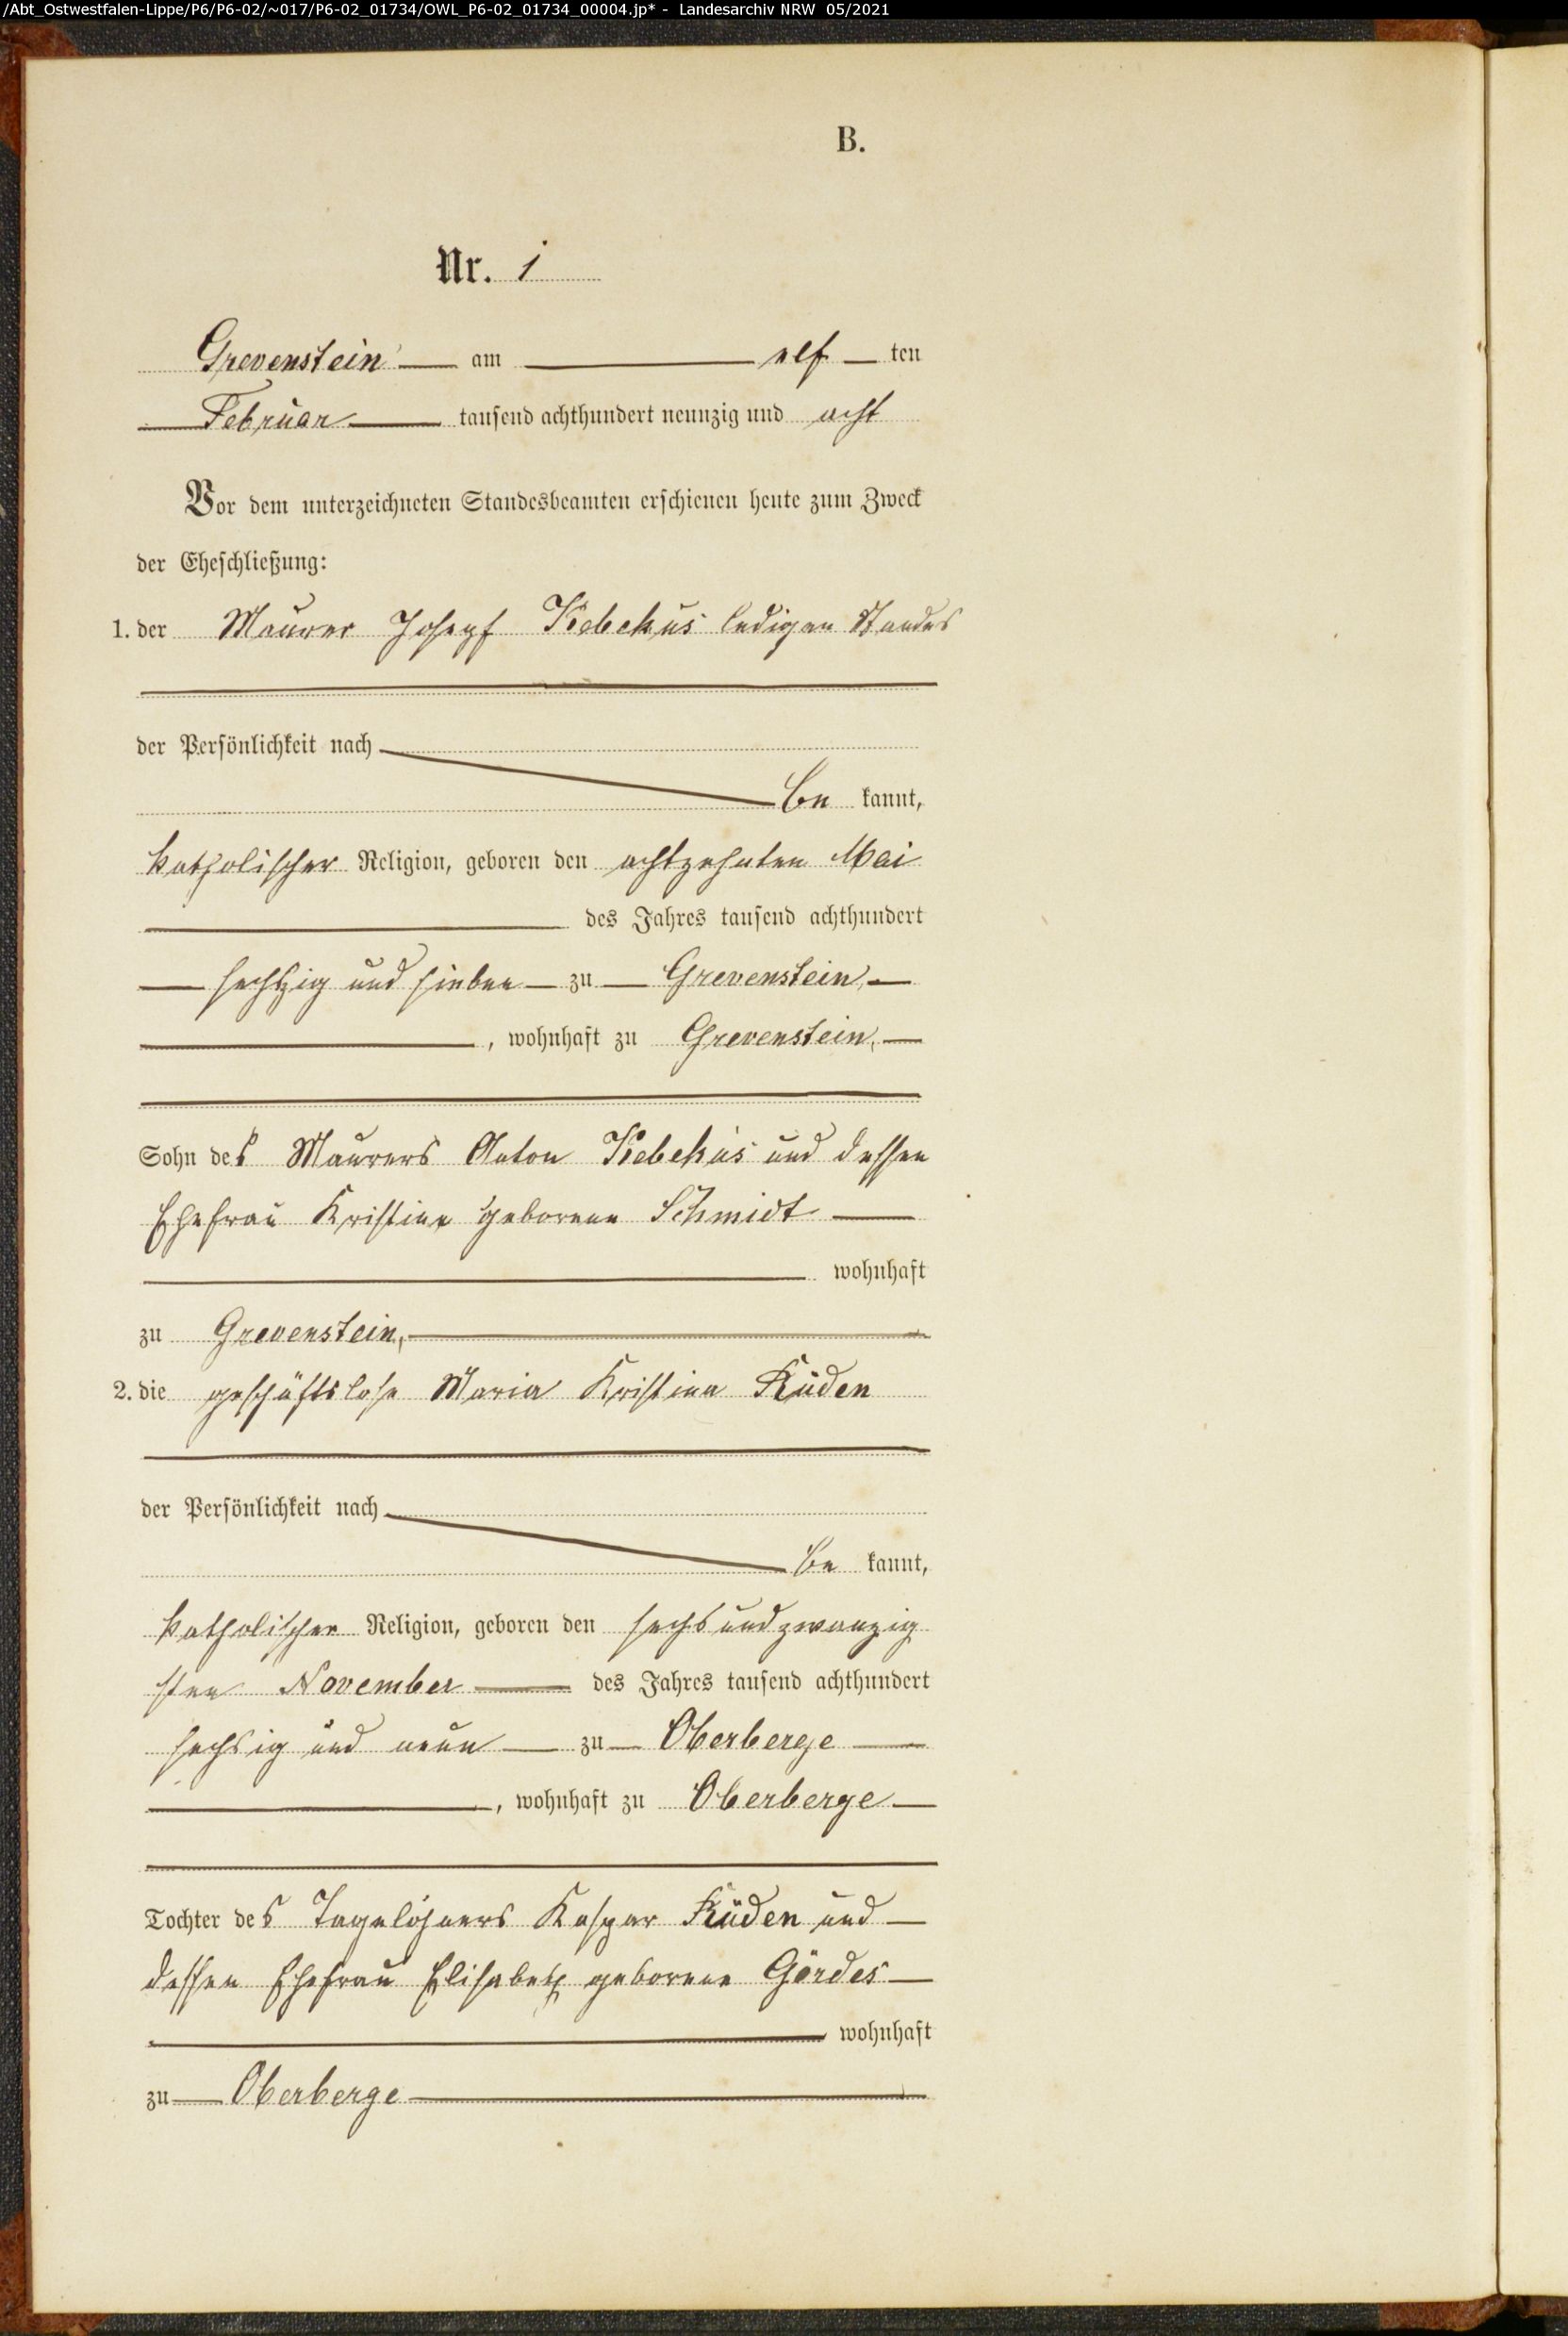 /Abt_Ostwestfalen-Lippe/P6/P6-02/~017/P6-02_01734/OWL_P6-02_01734_00004.jp* - Landesarchiv NRW 05/2021
B.
Nr. 1
Grevenstein am elf ten
Februar tausend achthundert neunzig und acht
Vor dem unterzeichneten Standesbeamten erschienen heute zum Zweck
der Eheschließung:
1. der Maurer Joseph Kebekus ledigen Standes
der Persönlichkeit nach
be kannt,
katholischer Religion, geboren den achtzehnten Mai
des Jahres tausend achthundert
sechtzig und sieben zu Grevenstein,
, wohnhaft zu Grevenstein,
Sohn des Maurers Anton Kebekus und dessen
Ehefrau Kristine geborene Schmidt
wohnhaft
zu Grevenstein,
2. die geschäftslose Maria Kristina Küden
der Persönlichkeit nach
be kannt,
katholischer Religion, geboren den sechsundzwanzig
sten November des Jahres tausend achthundert
sechsig und neun zu Oberberge
, wohnhaft zu Oberberge
Tochter des Tagelöhners Kaspar Küden und
dessen Ehefrau Elisabeth geborene Gördes
wohnhaft
zu Oberberge